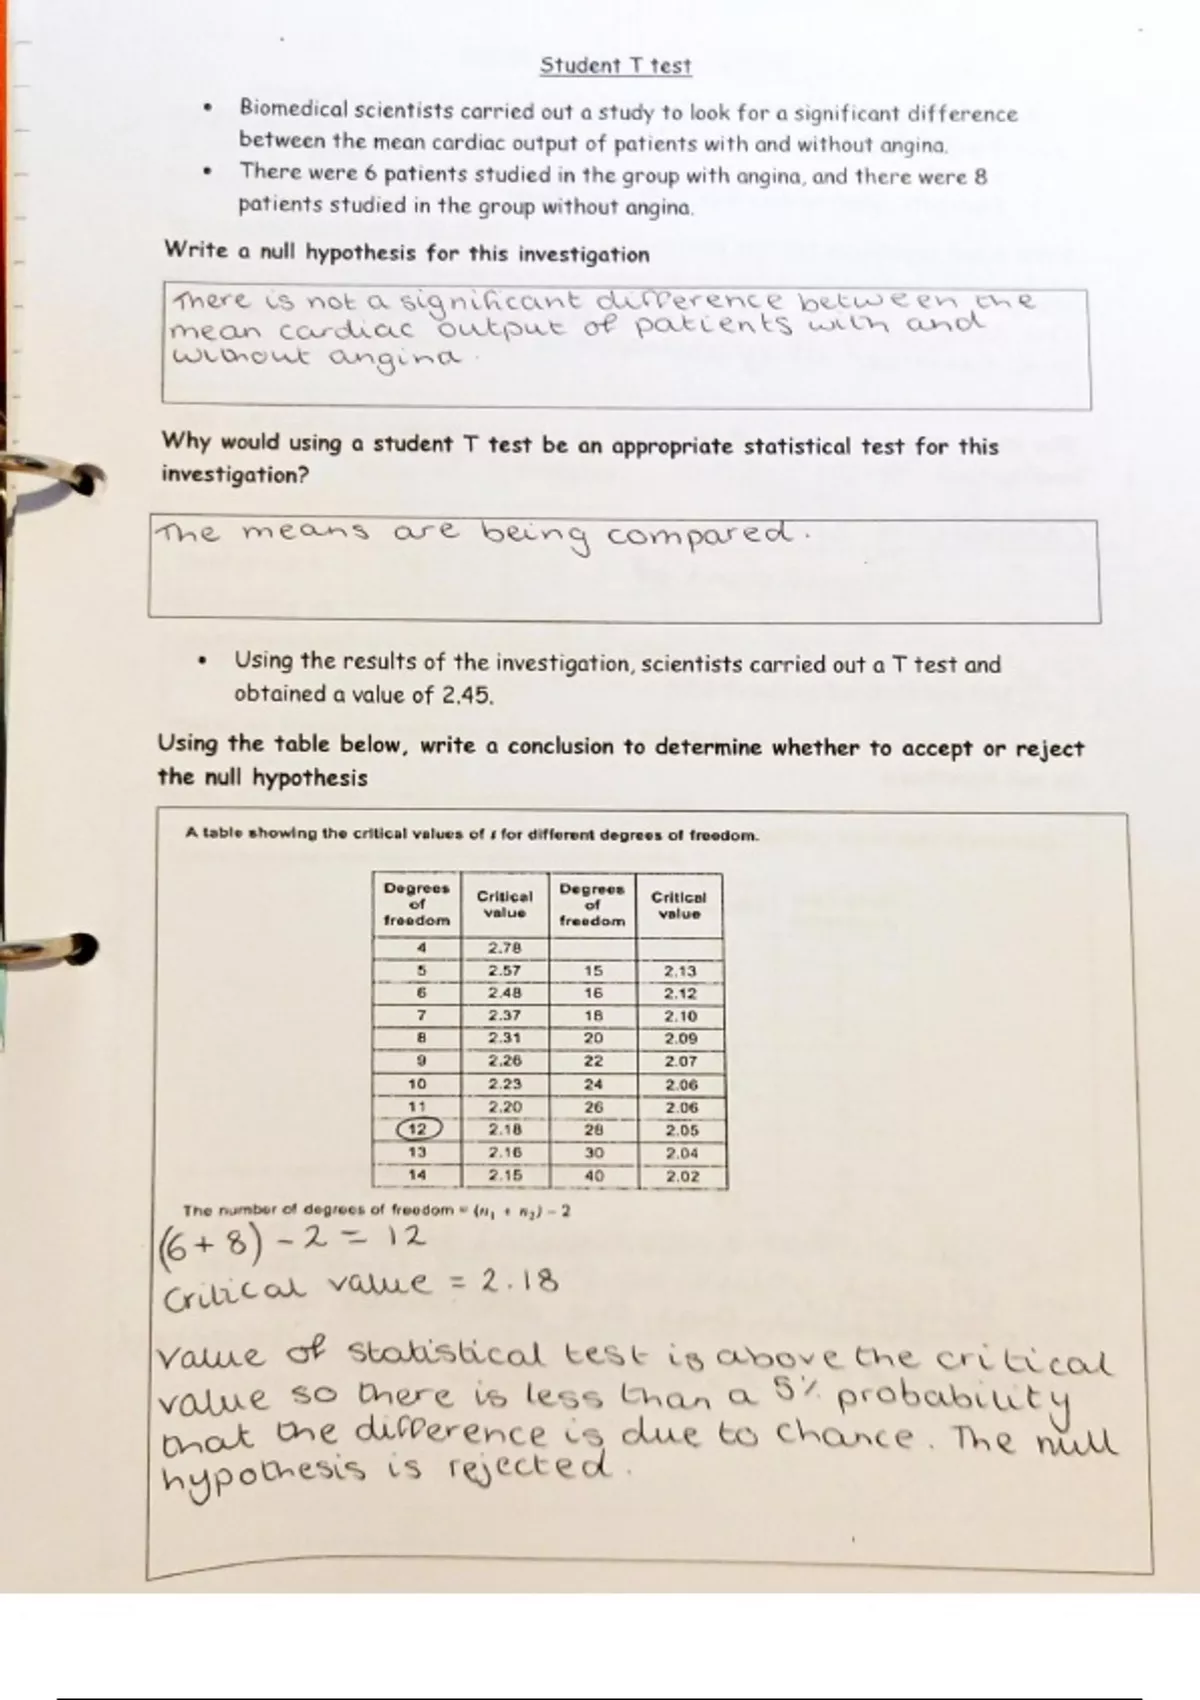 Student T test
• Biomedical scientists carried out a study to look for a significant difference
between the mean cardiac output of patients with and without angina.
• There were 6 patients studied in the group with angina, and there were 8
patients studied in the group without angina.
Write a null hypothesis for this investigation
There is not a significant difference between the
mean cardiac output of patients with and
without angina.
Why would using a student T test be an appropriate statistical test for this
investigation?
The means are being compared.
• Using the results of the investigation, scientists carried out a T test and
obtained a value of 2.45.
Using the table below, write a conclusion to determine whether to accept or reject
the null hypothesis
A table showing the critical values of t for different degrees of freedom.
Degrees of freedom Critical value Degrees of freedom Critical value
4 2.78
5 2.57 15 2.13
6 2.48 16 2.12
7 2.37 18 2.10
8 2.31 20 2.09
9 2.26 22 2.07
10 2.23 24 2.06
11 2.20 26 2.06
12 2.18 28 2.05
13 2.16 30 2.04
14 2.15 40 2.02
The number of degrees of freedom = (n₁ + n₂) - 2
(6+8) - 2 = 12
Critical value = 2.18
Value of statistical test is above the critical
value so there is less than a 5% probability
that the difference is due to chance. The null
hypothesis is rejected.